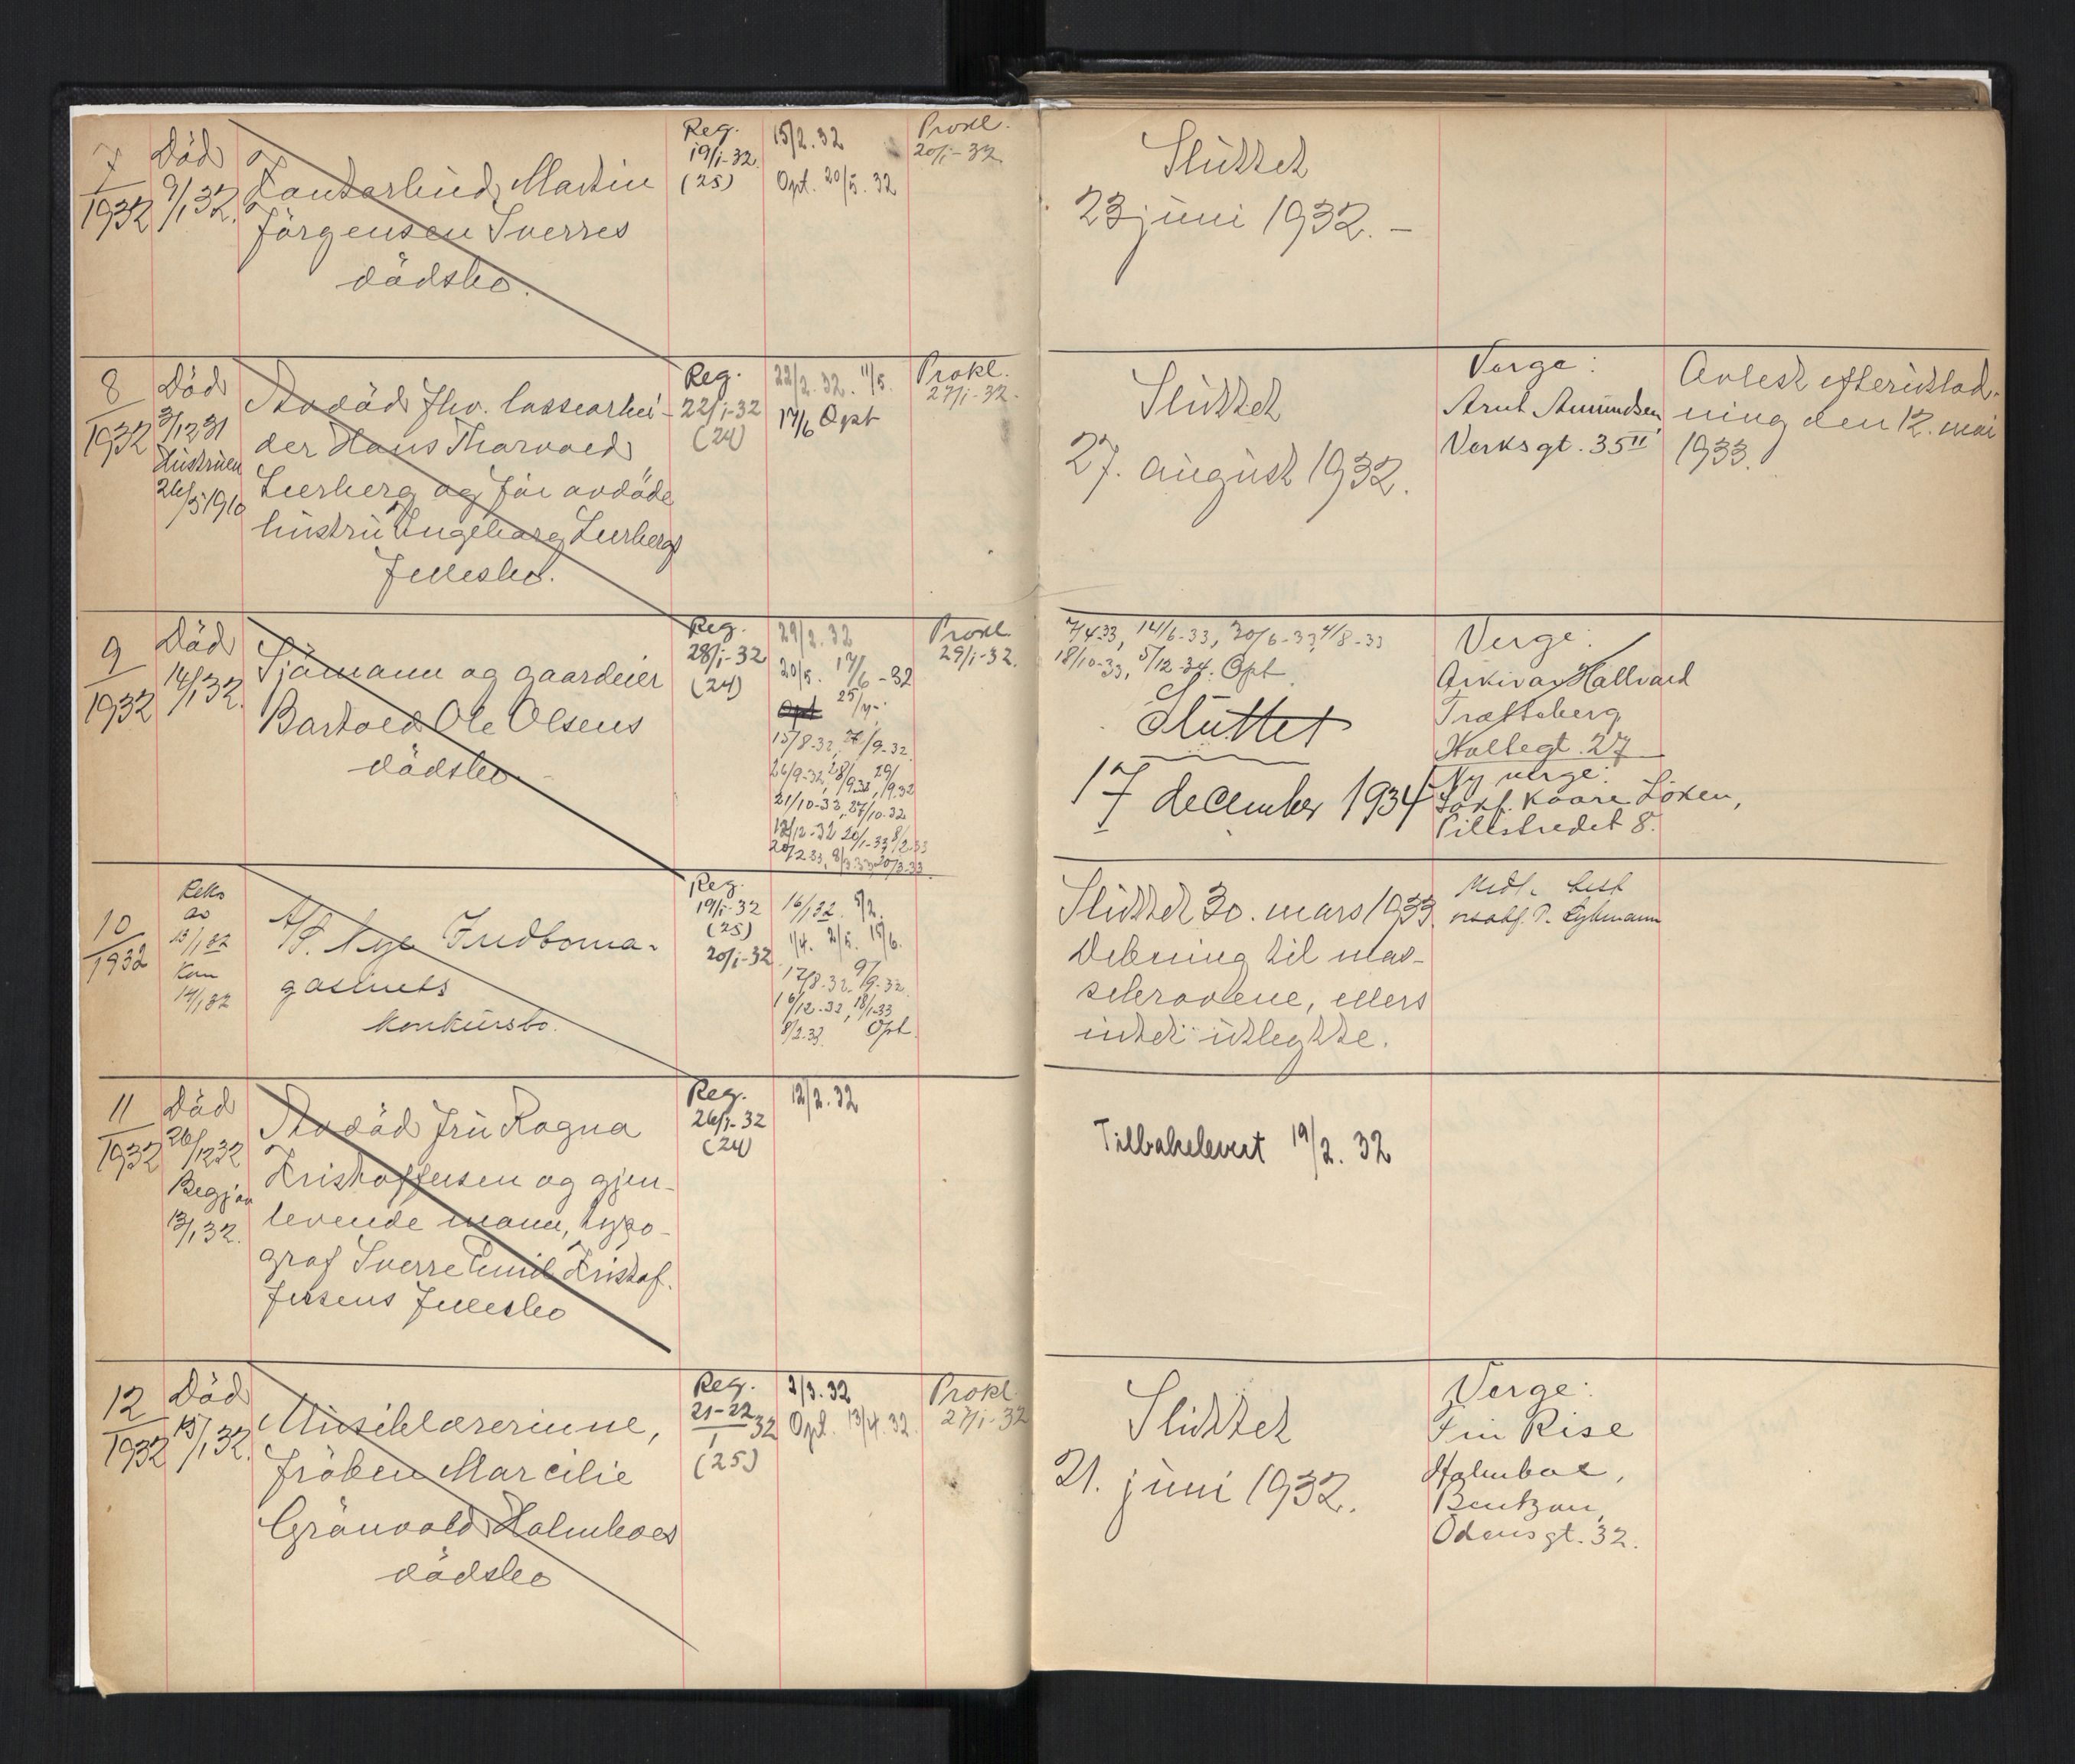 7
1932
Död
9/1 32.
Kontorbud Martin
Jörgensen Sverres
dödsbo.
Reg.
19/1-32.
(25)
15/2.32
Opt. 20/5. 32
Prokl.
20/1-32.
Sluttet
23 juni 1932. -
8
1932
Död
3/12 31
Hustruen
26/5 1910
Avdöd fhv. lossearbei-
der Hans Thorvald
Leerberg og före avdöde
hustru Ingeborg Leerbergs
fellesbo.
Reg.
22/1-32
(24)
22/2.32. 11/5.
17/6 Opt
Prokl.
27/1-32.
Sluttet
27. august 1932.
Verge:
Arnt Amundsen,
Verksgt. 35 II
Avlest efterutlod-
ning den 12. mai
1933.
9
1932
Död
14/1 32.
Sjömann og gaardeier
Bartold Ole Olsens
dödsbo.
Reg.
28/1-32
(24)
29/2.32
20/5. 17/6-32
Opt 25/7-
15/8-32, /9-32
26/9-32, 28/9.32, 29/9.32
21/10-32, 27/10.32
12/12-32 20/1-33, 8/2.33
20/2 33, 8/3.33, 20/3.33
Prokl
29/1-32.
7/4 33, 14/6-33, 20/6-33, 4/8-33
18/10-33, 5/12-34. Opt.
Sluttet
17 december 1934
Verge:
Arkivar Hallvard
Trætteberg
Holtegt. 27
Ny verge:
Kaare Löken,
Pilestredet 8.
10
1932
Reks
av
13/1 32
Kon
14/1 32
A/S. Nye Indboma-
gasinets
konkursbo.
Reg.
19/1-32
(25)
20/1-32
16/1 32. 5/2.
1/4. 2/5. 15/6.
17/8-32. 9/9-32.
16/12-32, 18/1-33
8/2-33. Opt.
Sluttet 30. mars 1933.
Dekning til mas-
sekravene, ellers
intet utlegte.
Midl. best
P.
11
1932
Död
26/12 32
Begj av
13/1 32.
Avdöd fru Ragna
Kristoffersen og gjen-
levende mann, typo-
graf Sverre Emil Kristof-
fersens fellesbo
Reg.
26/1-32
(24)
12/2.32
Tilbakelevert 19/2. 32
12
1932
Död
15/1 32.
Musiklærerinne,
fröken Marcilie
Grönvold Holmboes
dödsbo
Reg.
21-22
1 32
(25)
2/3.32
Opt. 13/4.32.
Prokl.
27/1-32
Sluttet
21. juni 1932.
Verge:
Fru Rise
Holmboe,
Bentzon,
Odensgt. 32.